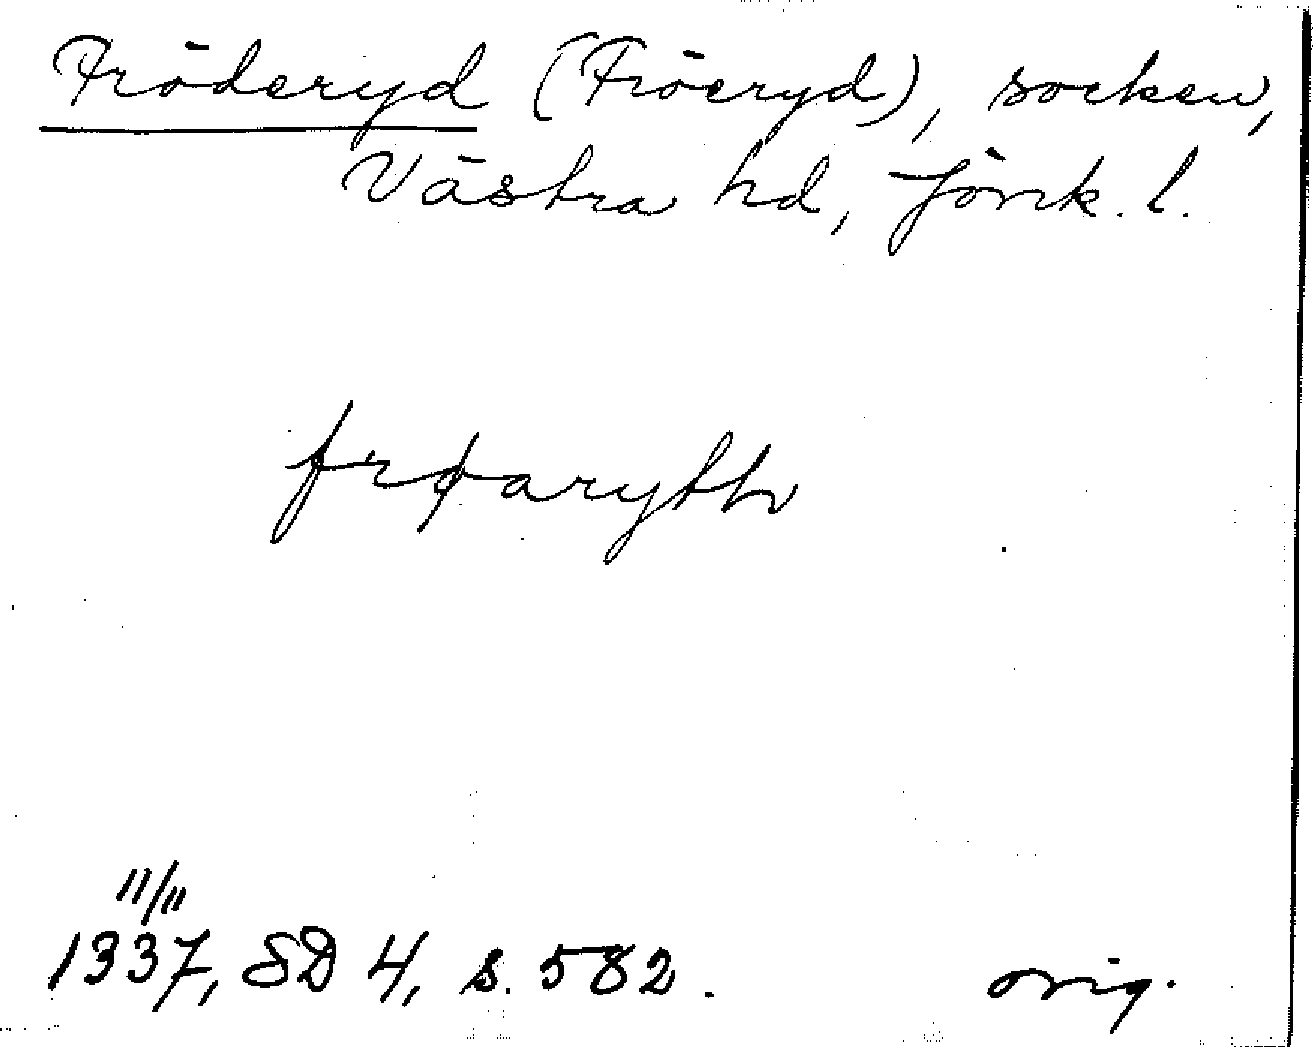 Fröderyd (Fröeryd), socken,
Västra hd, Jönk. l.
frøaryth
11/11
1337, SD 4, s. 582.
orig.